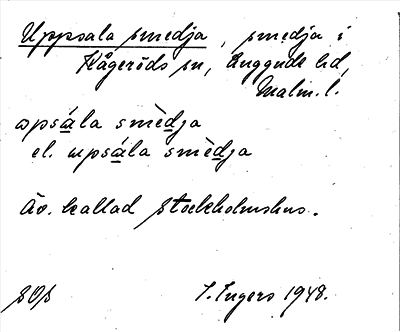 Uppsala smedja, smedja i
Kågeröds sn, Luggude hd,
Malm. l.
ɯpsàla smèdja
el. ɯpsála smèdja
Äv. kallad Stockholmshus.
SOS
I. Ingers 1948.